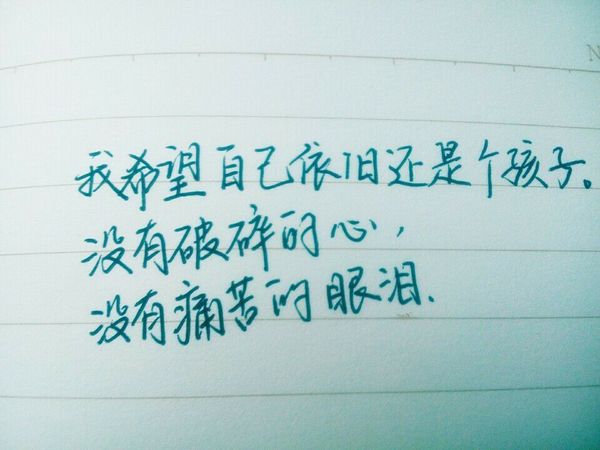 我希望自己依旧还是个孩子。
没有破碎的心，
没有痛苦的眼泪.